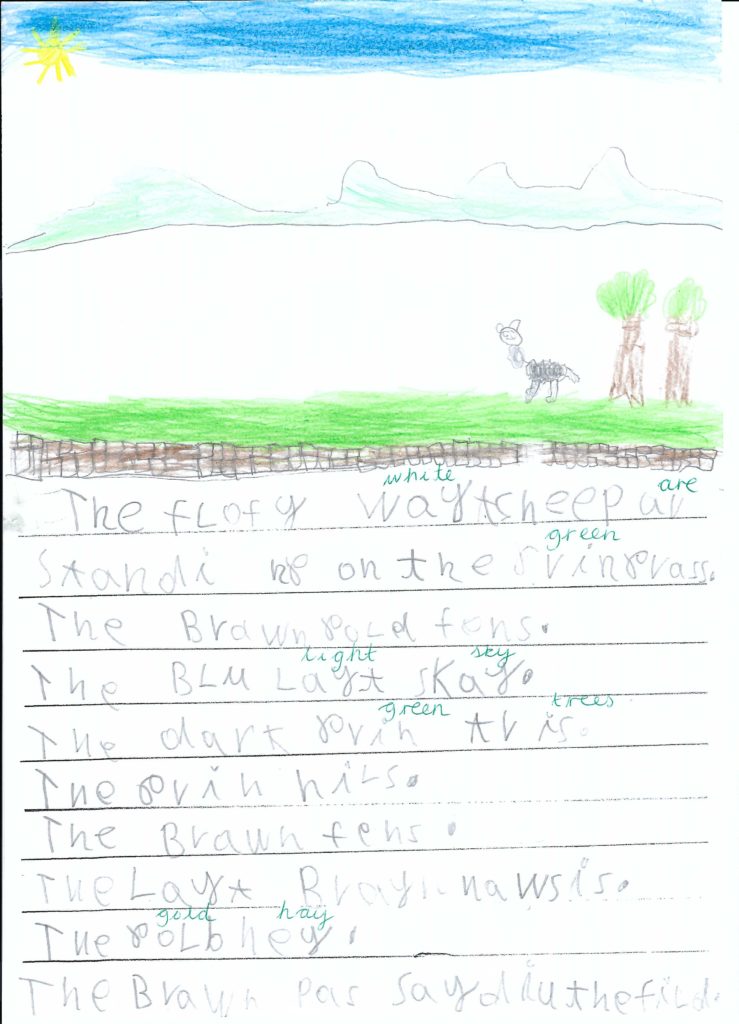 white are
The flofy wayt sheep ar
green
Standi ng on the grin grass.
The Brawn gold fens.
light sky
The BLu Layt skay.
green trees
The dark grin tris.
The grin hils.
The Brawn fens.
The Layt Brayn hawsis.
gold hay
The golb hey.
The Brawn pas sayd in the fild.